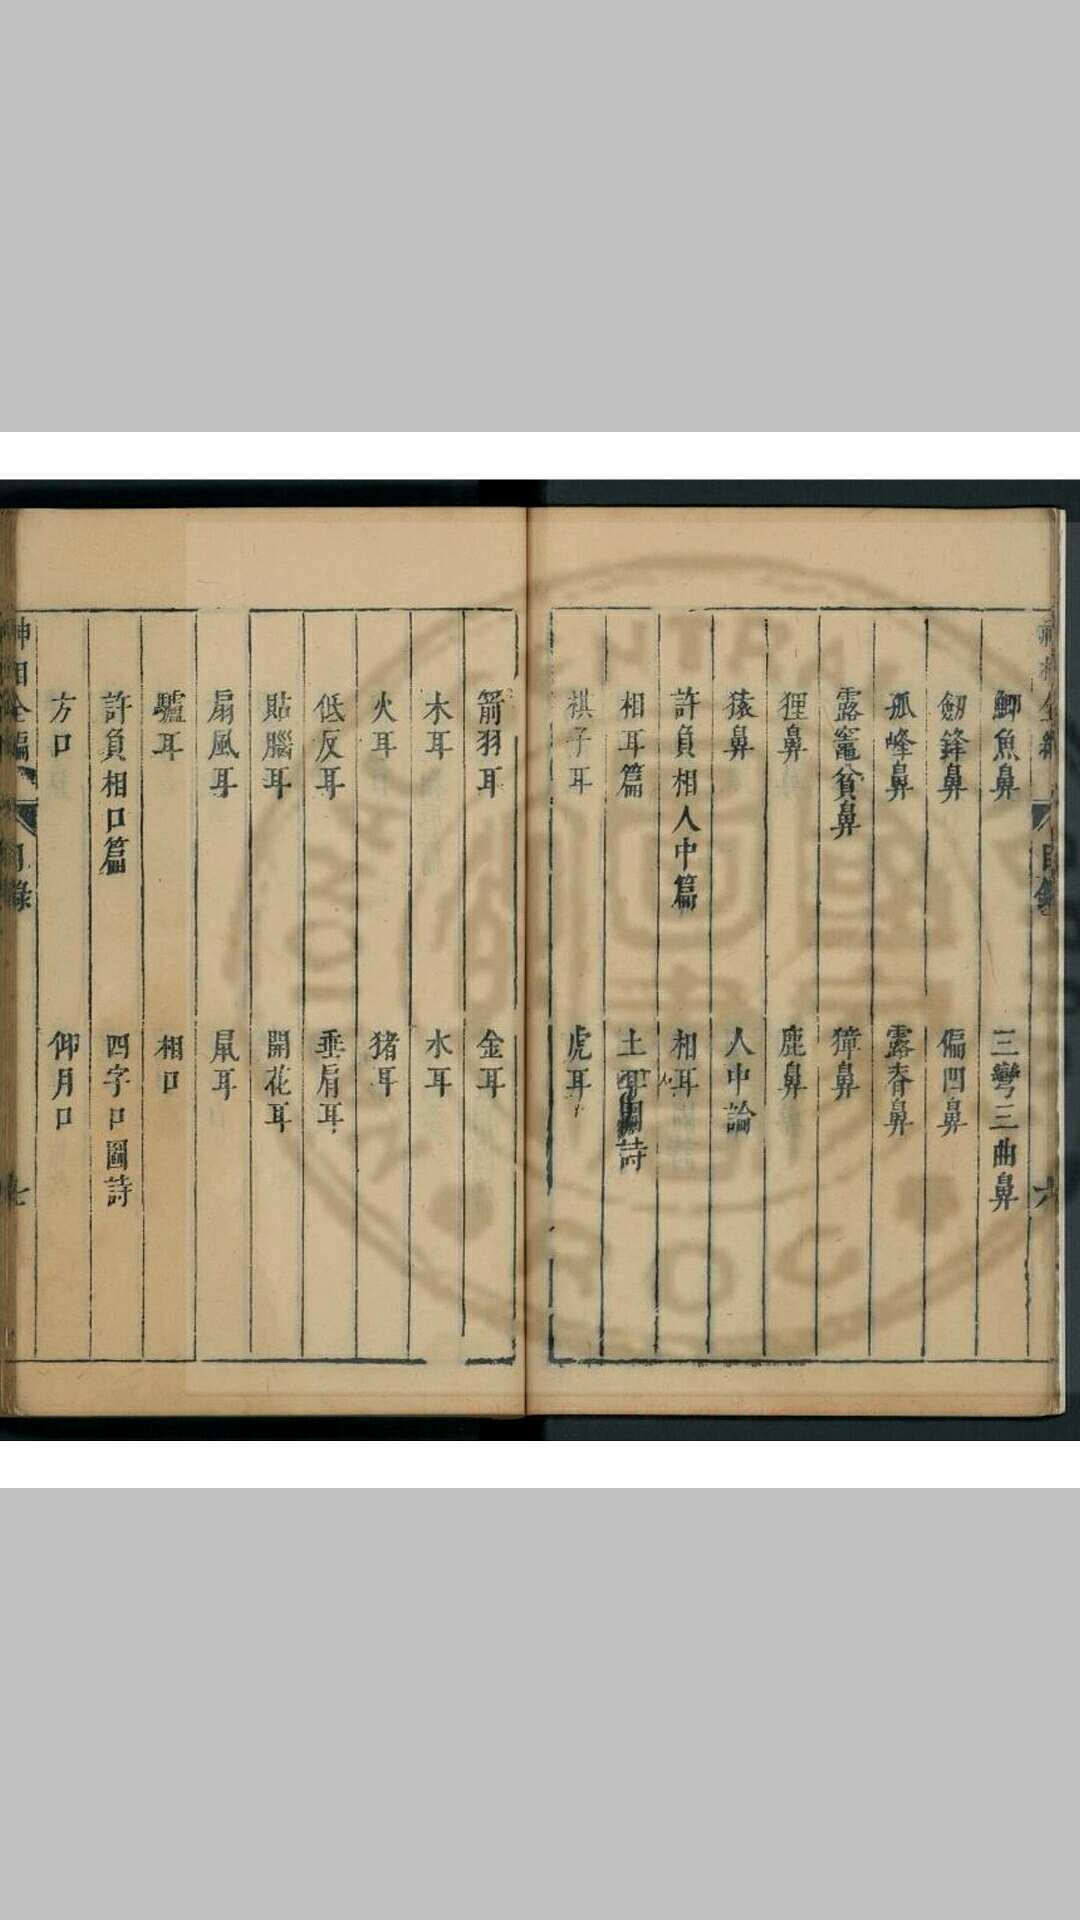 鯽魚鼻　三彎三曲鼻
劒鋒鼻　偏凹鼻
孤峰鼻　露脊鼻
露竈貧鼻　獐鼻
狸鼻　鹿鼻
猿鼻　人中論
許負相人中篇　相耳
相耳篇　土耳圖詩
棋子耳　虎耳
箭羽耳　金耳
木耳　水耳
火耳　猪耳
低反耳　垂肩耳
貼腦耳　開花耳
扇風耳　鼠耳
驢耳　相口
許負相口篇　四字口圖詩
方口　仰月口
神相全編　目錄　七